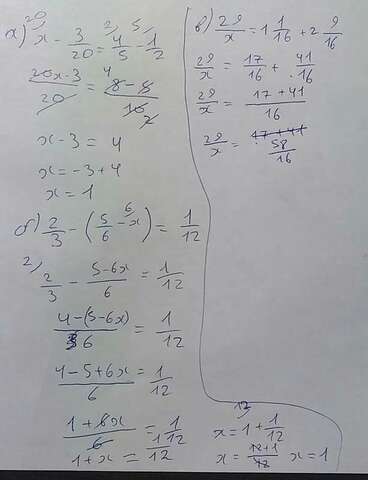 а) x - 3/20 = 4/5 - 1/2
(20x-3)/20 = (8-5)/10
x-3=4
x=-3+4
x=1
б) 2/3 - (5/6 - x) = 1/12
2/3 - (5-6x)/6 = 1/12
(4-(5-6x))/6 = 1/12
(4-5+6x)/6 = 1/12
(1+6x)/6 = 1/12
1+x = 1/12
x=1+1/12
x=(12+1)/12 x=1
в) 29/x = 1 1/16 + 2 9/16
29/x = 17/16 + 41/16
29/x = (17+41)/16
29/x = 58/16